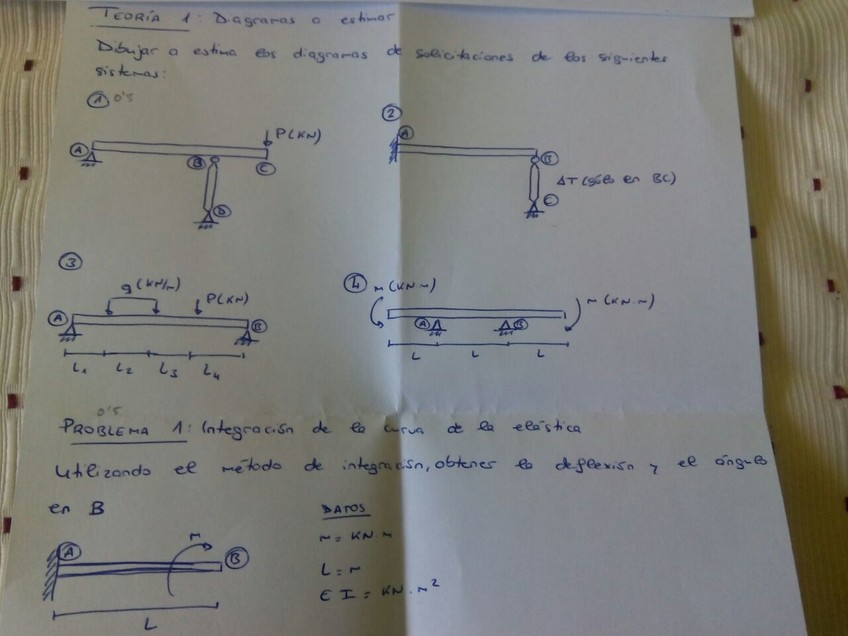 TEORÍA 1: Diagramas a estimar
Dibujar o estima los diagramas de solicitaciones de los siguientes
sistemas:
① 0'5
②
P(KN)
A
B
C
D
A
B
C
ΔT (sólo en BC)
③
q(KN/m)
P(KN)
A
B
L1 L2 L3 L4
④ M(KN·m)
M(KN·m)
A
B
L L L
0'5
PROBLEMA 1: Integración de la curva de la elástica
Utilizando el método de integración, obtenes la deflexión y el ángulo
en B
DATOS
M = KN·m
L = m
E I = KN·m²
A
M
B
L